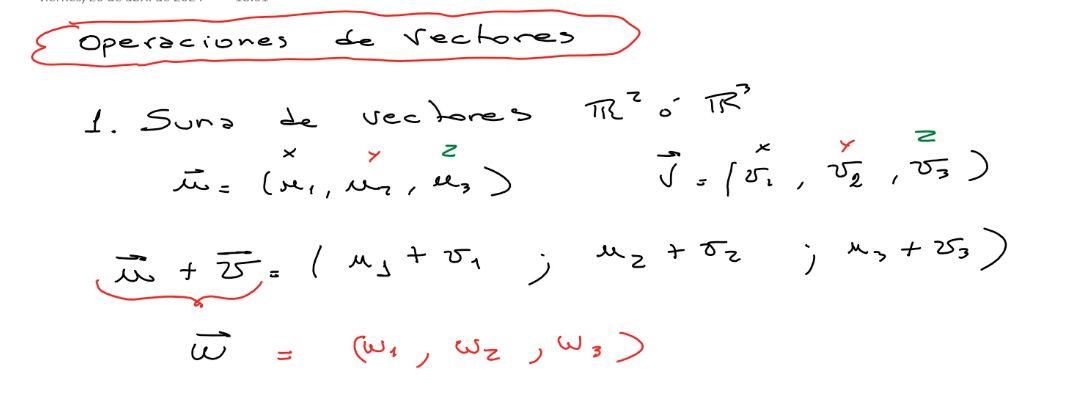 Operaciones de vectores
1. Suma de vectores ℝ² ó ℝ³
x y z x y z
u⃗ = (u₁, u₂, u₃) v⃗ = (v₁, v₂, v₃)
u⃗ + v̅ = (u₁ + v₁ ; u₂ + v₂ ; u₃ + v₃)
w⃗ = (w₁, w₂, w₃)